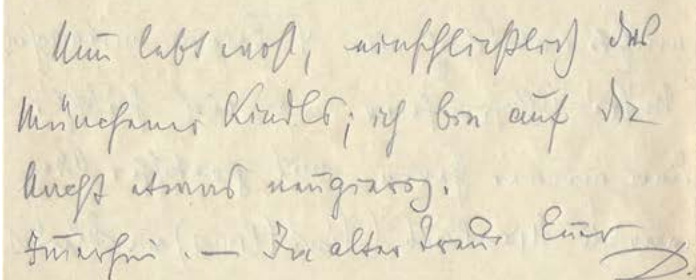 Nun lebt wohl, einschließlich des
Münchener Kindls; ich bin auf die
Nacht etwas neugierig.
Immerhin. — In alter Treue Euer